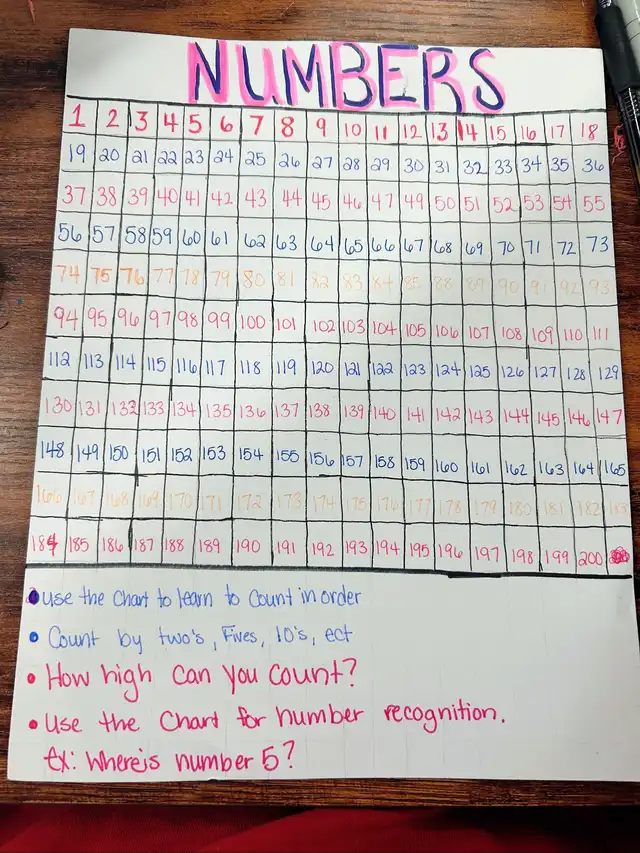 NUMBERS
1 2 3 4 5 6 7 8 9 10 11 12 13 14 15 16 17 18
19 20 21 22 23 24 25 26 27 28 29 30 31 32 33 34 35 36
37 38 39 40 41 42 43 44 45 46 47 49 50 51 52 53 54 55
56 57 58 59 60 61 62 63 64 65 66 67 68 69 70 71 72 73
74 75 76 77 78 79 80 81 82 83 84 85 88 89 90 91 92 93
94 95 96 97 98 99 100 101 102 103 104 105 106 107 108 109 110 111
112 113 114 115 116 117 118 119 120 121 122 123 124 125 126 127 128 129
130 131 132 133 134 135 136 137 138 139 140 141 142 143 144 145 146 147
148 149 150 151 152 153 154 155 156 157 158 159 160 161 162 163 164 165
166 167 168 169 170 171 172 173 174 175 176 177 178 179 180 181 182 183
184 185 186 187 188 189 190 191 192 193 194 195 196 197 198 199 200
• use the chart to learn to count in order
• Count by two's, Fives, 10's, ect
• How high can you count?
• Use the Chart for number recognition.
Ex: Where's number 5?